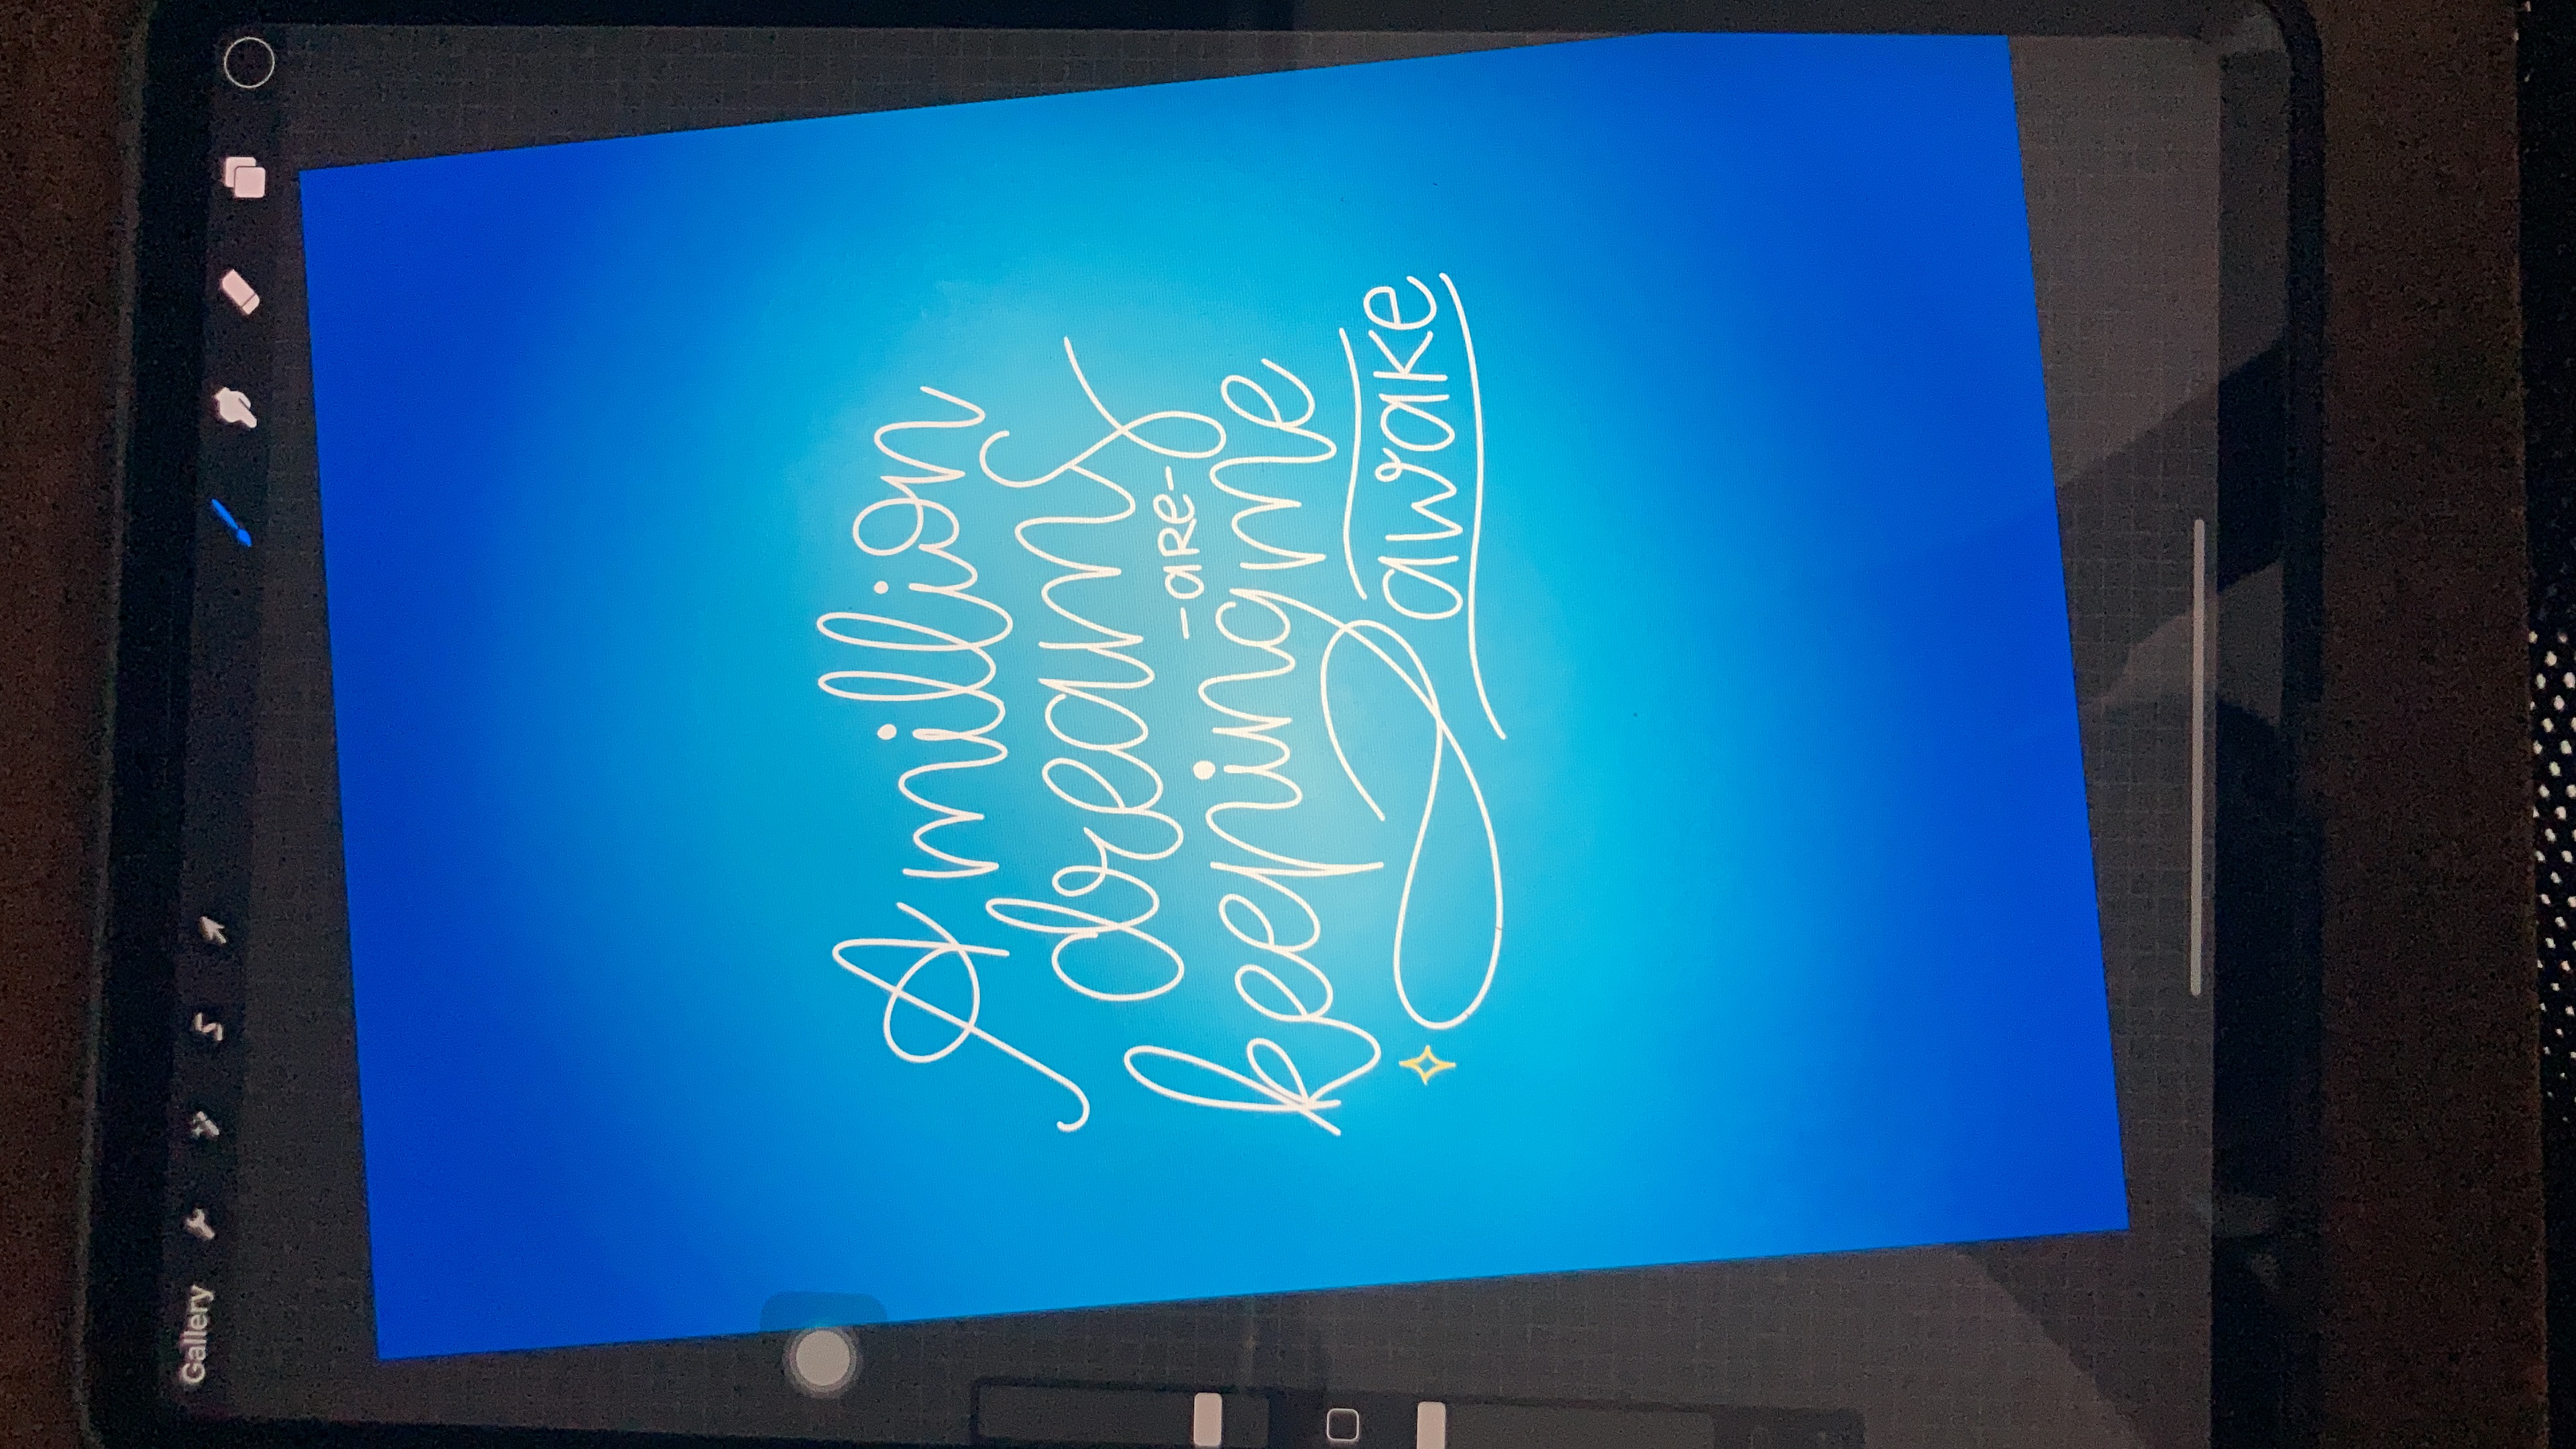 Gallery
A million
dreams
-are-
keeping me
awake